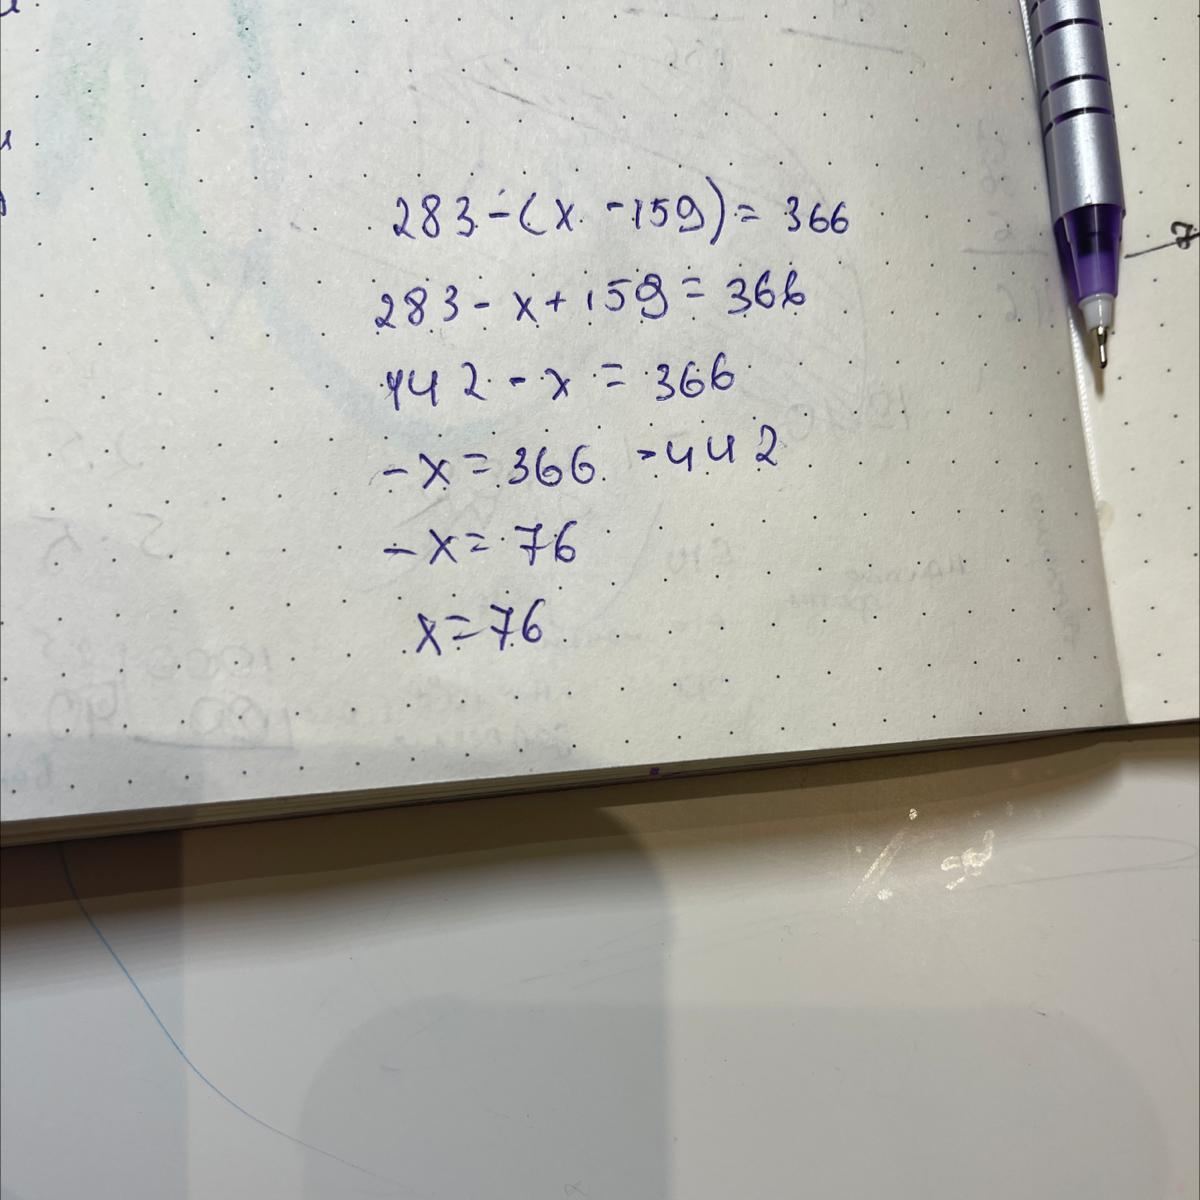 283-(x-159)=366
283-x+159=366
442-x=366
-x=366-442
-x=76
x=76
7